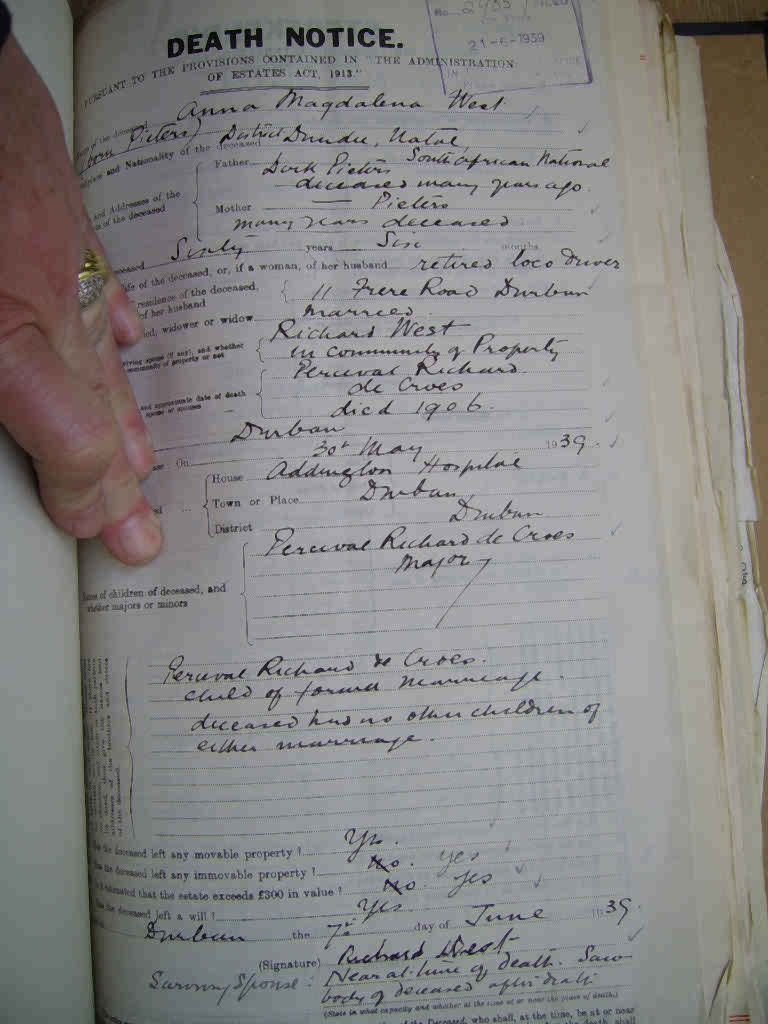 No. 2455 / FILED
21-6-1939
DEATH NOTICE.
PURSUANT TO THE PROVISIONS CONTAINED IN "THE ADMINISTRATION
OF ESTATES ACT, 1913."
of the deceased Anna Magdalena West
(born Pieters)
place and Nationality of the deceased District Dundee, Natal,
South African National
and Addresses of the
of the deceased
Father Dirk Pieters
deceased many years ago.
Mother — Pieters
many years deceased
deceased Sixty years Six months
life of the deceased, or, if a woman, of her husband retired loco driver
residence of the deceased,
of her husband
11 Frere Road Durban
ied; widower or widow married
viving spouse (if any), and whether
community of property or not
Richard West
in community of Property
and approximate date of death
spouse or spouses
Percival Richard
de Croes
died 1906.
Durban
On 30th May 1939.
House Addington Hospital
Town or Place Durban
District Durban
Names of children of deceased, and
whether majors or minors
Percival Richard de Croes
Major
Percival Richard de Croes.
child of former marriage.
deceased had no other children of
either marriage.
of the deceased.
Has the deceased left any movable property? Yes.
Has the deceased left any immovable property? No. yes
Is it estimated that the estate exceeds £300 in value? No. yes
Has the deceased left a will? Yes
Durban the 7th day of June 1939.
(Signature) Richard West
Surviving Spouse: Near at time of death. Saw
body of deceased after death
(State in what capacity and whether at the time at or near the place of death.)
of the Deceased, who shall, at the time, be at or near